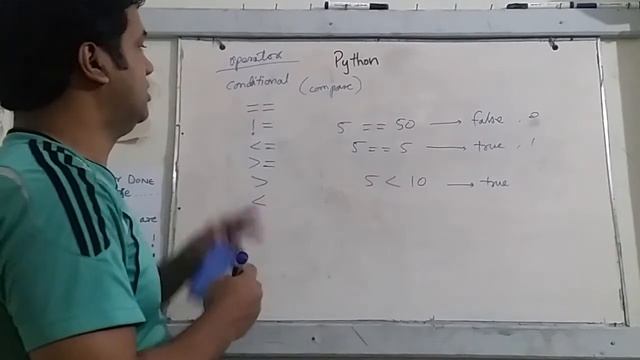 operator
Python
conditional (compare)
==
!=
<=
>=
>
<
5 == 50 → false . 0
5 == 5 → true . 1
5 < 10 → true
DONE
are
!
!